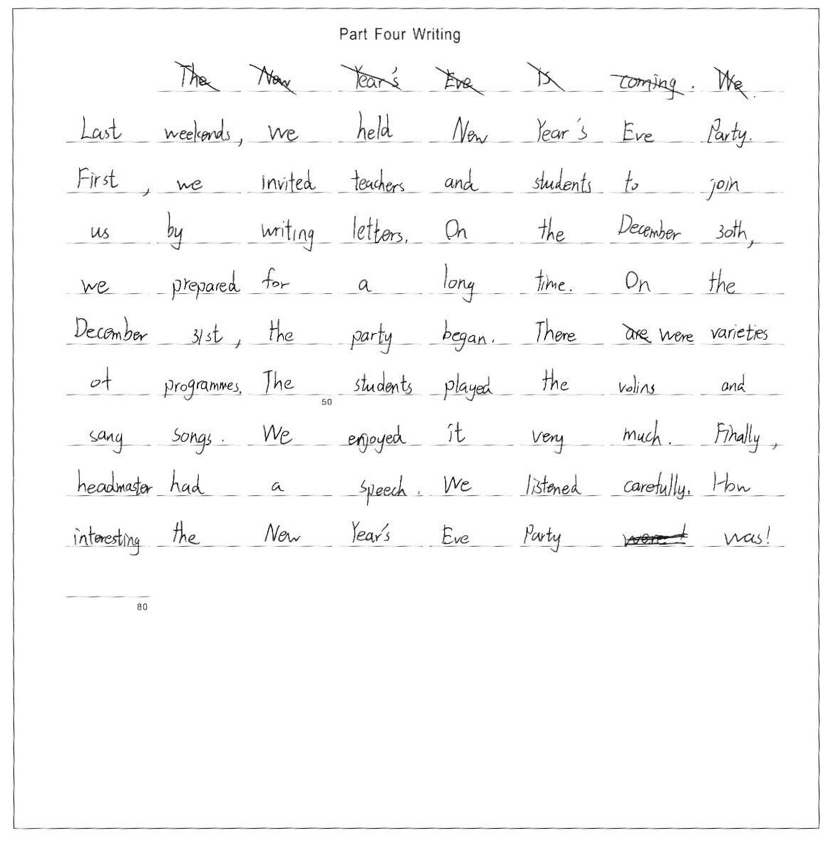 Part Four Writing
The New Year's Eve is coming. We
Last weekends, we held New Year's Eve Party.
First, we invited teachers and students to join
us by writing letters. On the December 30th,
we prepared for a long time. On the
December 31st, the party began. There are were varieties
of programmes. The students played the volins and
50
sang songs. We enjoyed it very much. Finally,
headmaster had a speech. We listened carefully. How
interesting the New Year's Eve Party was!
80